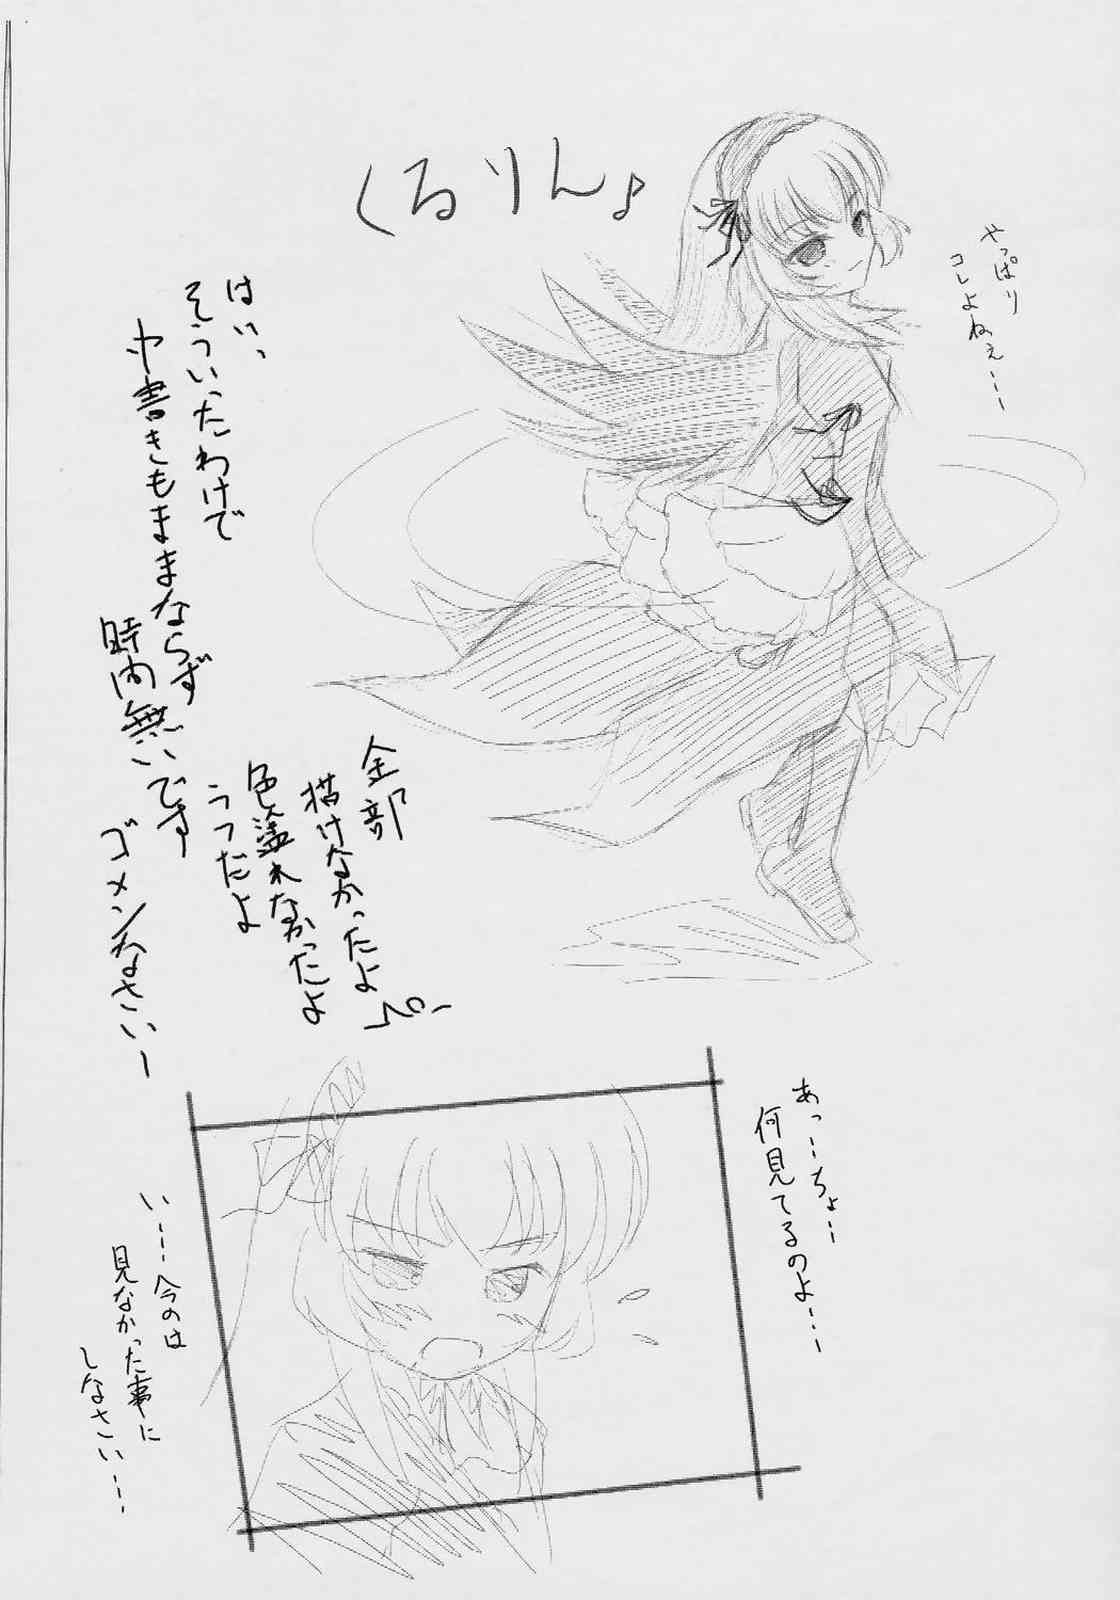 くるりん♪
やっぱり
コレよねぇ…
はい、
そういったわけで
中書きもままならず
時間無いです
ゴメンなさいー
全部
描けなかったよ
色塗れなかったよ
うつだよ
あっ…ちょ…
何見てるのよ…
い…今のは
見なかった事に
しなさい…